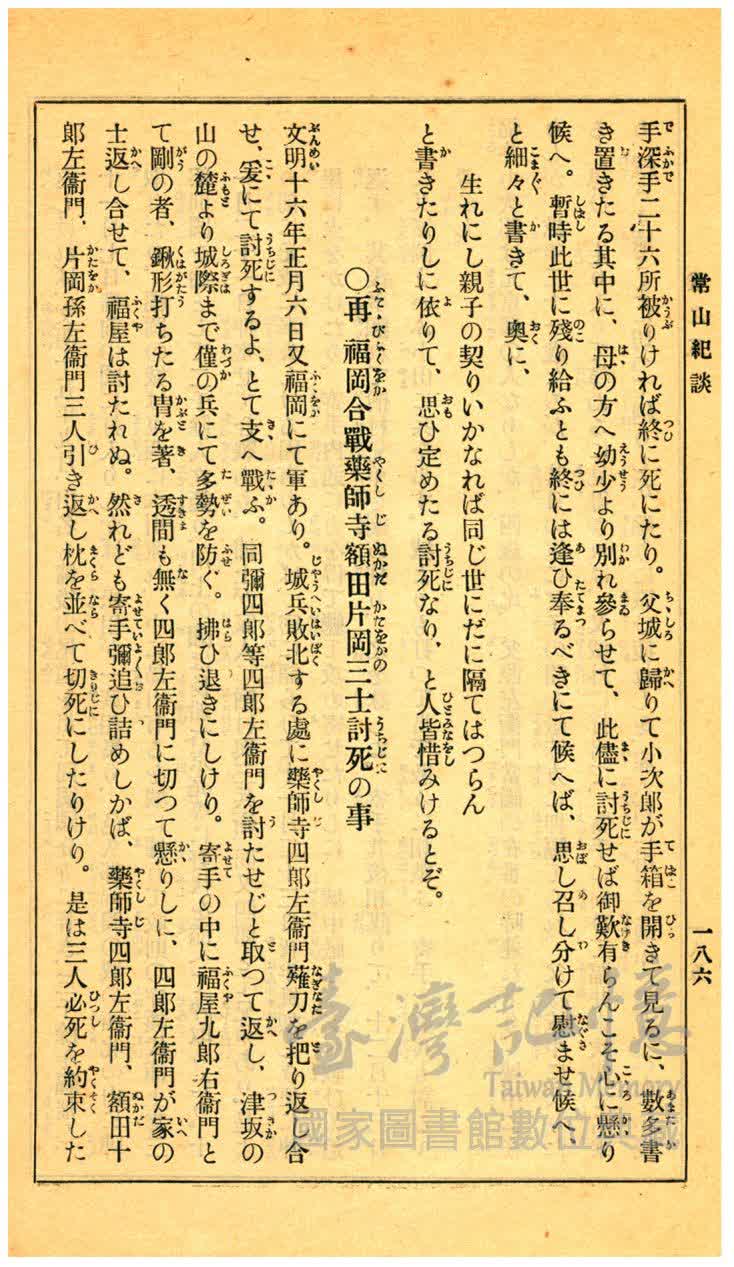 常山紀談
一八六
手深手二十六所被りければ終に死にたり。父城に歸りて小次郎が手箱を開きて見るに、數多書
き置きたる其中に、母の方へ幼少より別れ參らせて、此儘に討死せば御歎有らんこそ心に懸り
候へ。暫時此世に殘り給ふとも終には逢ひ奉るべきにて候へば、思し召し分けて慰ませ候へ、
と細々と書きて、奧に、
生れにし親子の契りいかなれば同じ世にだに隔てはつらん
と書きたりしに依りて、思ひ定めたる討死なり、と人皆惜みけるとぞ。
〇再福岡合戰藥師寺額田片岡三士討死の事
文明十六年正月六日又福岡にて軍あり。城兵敗北する處に藥師寺四郎左衞門薙刀を把り返し合
せ、爰にて討死するよ、とて支へ戰ふ。同彌四郎等四郎左衞門を討たせじと取つて返し、津坂の
山の麓より城際まで僅の兵にて多勢を防ぐ。拂ひ退きにしけり。寄手の中に福屋九郎右衞門と
て剛の者、鍬形打ちたる冑を著、透間も無く四郎左衞門に切つて懸りしに、四郎左衞門が家の
士返し合せて、福屋は討たれぬ。然れども寄手彌追ひ詰めしかば、藥師寺四郎左衞門、額田十
郎左衞門、片岡孫左衞門三人引き返し枕を並べて切死にしたりけり。是は三人必死を約束した
臺灣記憶
Taiwan Memory
國家圖書館數位典藏